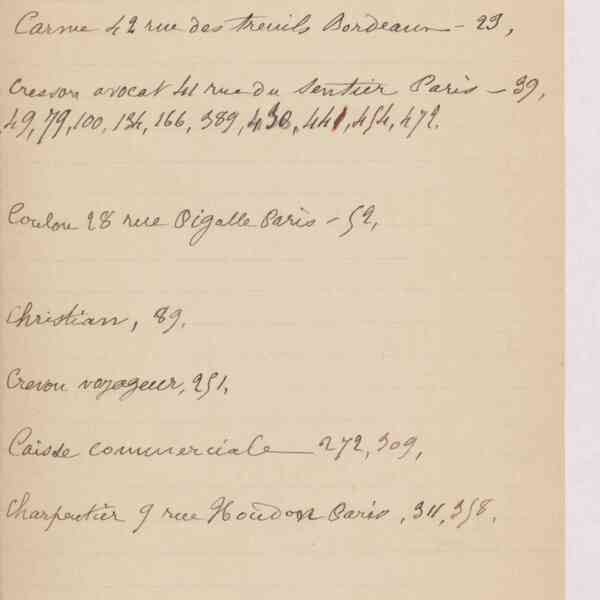 Carme 42 rue des treuils Bordeaux - 23,
Cresson avocat 41 rue du Sentier Paris - 39,
49, 79, 100, 134, 166, 389, 430, 441, 454, 472.
Coulon 28 rue Pigalle Paris - 52,
Christian, 89.
Crevon voyageur, 251,
Caisse commerciale 272, 309,
Charpentier 9 rue Houdon Paris, 311, 358.